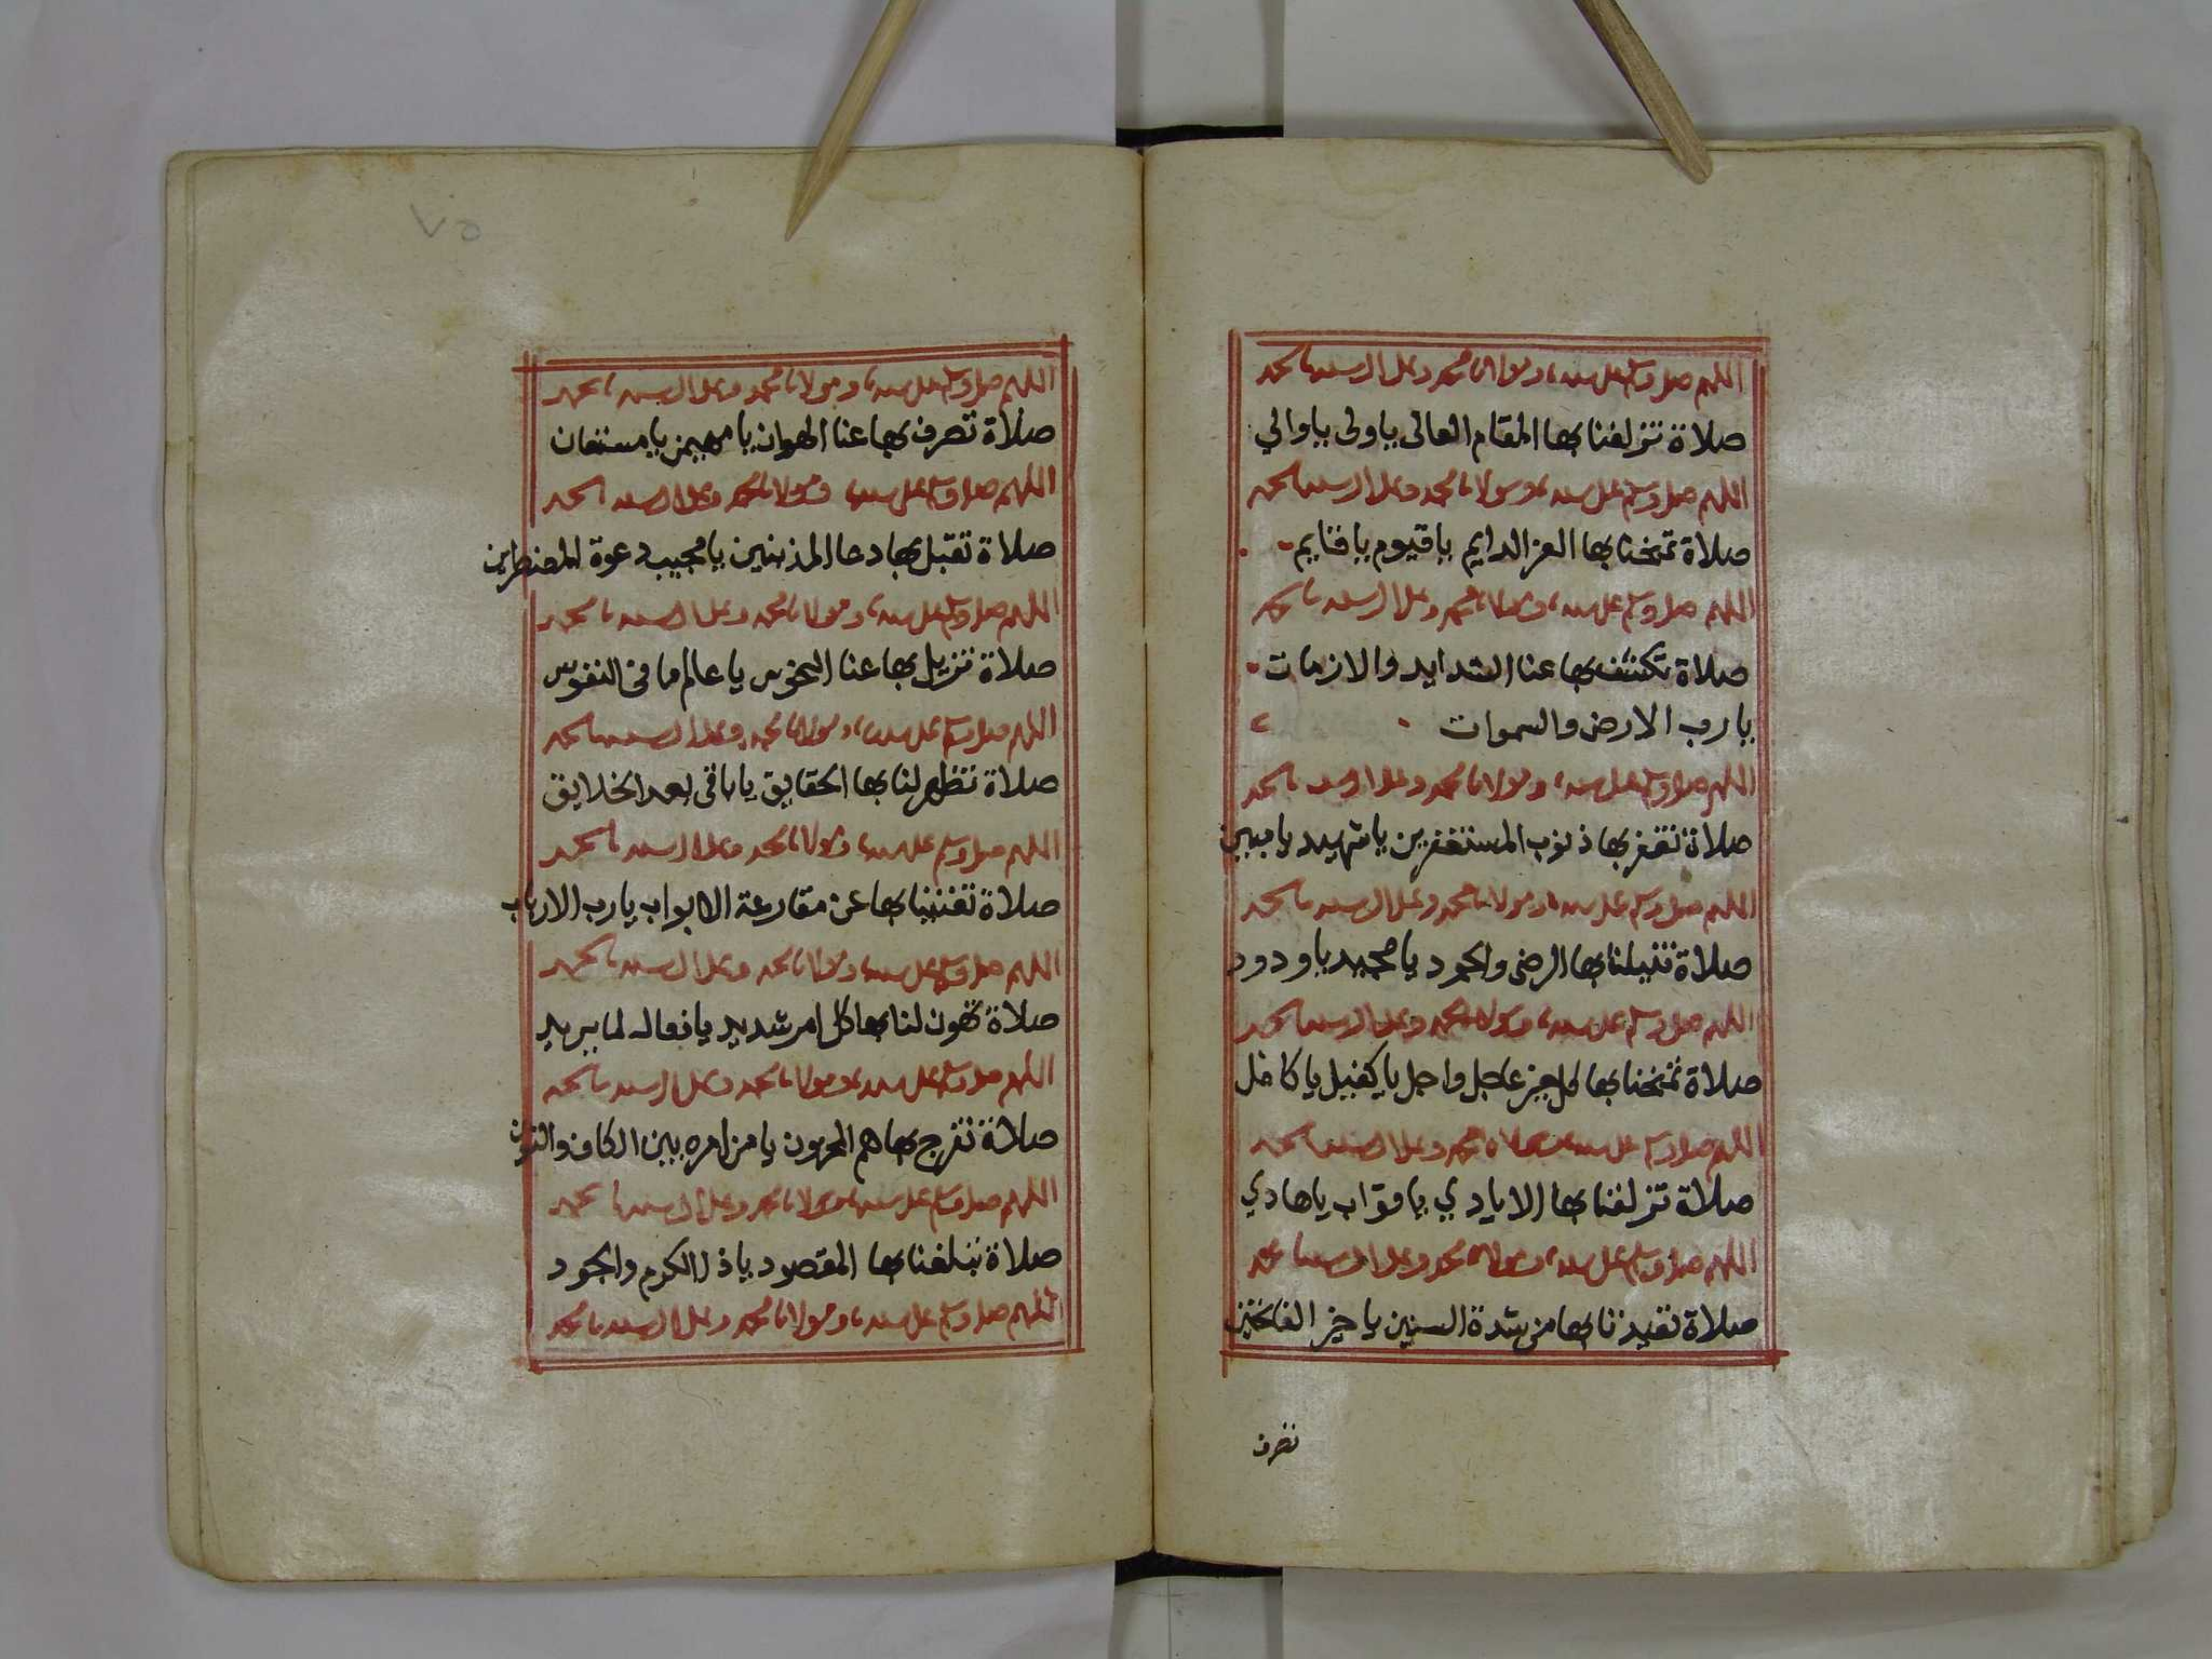 اللهم صل وسلم على سيدنا ومولانا محمد وعلى ال سيدنا محمد
صلاة تزلفنا بها المقام العالى ياولى ياوالي
اللهم صل وسلم على سيدنا ومولانا محمد وعلى ال سيدنا محمد
صلاة تمنحنا بها العز الدايم ياقيوم ياقايم
اللهم صل وسلم على سيدنا ومولانا محمد وعلى ال سيدنا محمد
صلاة تكشف بها عنا الشدايد والازمات
يارب الارض والسموات
اللهم صل وسلم على سيدنا ومولانا محمد وعلى ال سيدنا محمد
صلاة تغفر بها ذنوب المستغفرين ياشهيد يامبين
اللهم صل وسلم على سيدنا ومولانا محمد وعلى ال سيدنا محمد
صلاة تنيلنا بها الرضى والجود يامجيد ياودود
اللهم صل وسلم على سيدنا ومولانا محمد وعلى ال سيدنا محمد
صلاة تمنحنا بها كل عاجل واجل ياكفيل ياكافل
اللهم صل وسلم على سيدنا ومولانا محمد وعلى ال سيدنا محمد
صلاة تزلفنا بها الايادي ياتواب ياهادي
اللهم صل وسلم على سيدنا ومولانا محمد وعلى ال سيدنا محمد
صلاة بها من شدة السنين ياخير الفاتحين
تصرف
٧٥
اللهم صل وسلم على سيدنا ومولانا محمد وعلى ال سيدنا محمد
صلاة تصرف بها عنا الهوان يامهيمن يامستعان
اللهم صل وسلم على سيدنا ومولانا محمد وعلى ال سيدنا محمد
صلاة تقبل بها دعا المذنبين يامجيب دعوة المضطرين
اللهم صل وسلم على سيدنا ومولانا محمد وعلى ال سيدنا محمد
صلاة تزيل بها عنا النحوس ياعالم ما فى النفوس
اللهم صل وسلم على سيدنا ومولانا محمد وعلى ال سيدنا محمد
صلاة تظهر لنا بها الحقايق ياباقى بعد الخلايق
اللهم صل وسلم على سيدنا ومولانا محمد وعلى ال سيدنا محمد
صلاة تغنينا بها عن مقارعة الابواب يارب الارباب
اللهم صل وسلم على سيدنا ومولانا محمد وعلى ال سيدنا محمد
صلاة تهون لنا بها كل امر شديد يافعال لما يريد
اللهم صل وسلم على سيدنا ومولانا محمد وعلى ال سيدنا محمد
صلاة تفرج بها هم المحزون يامن امره بين الكاف والنون
اللهم صل وسلم على سيدنا ومولانا محمد وعلى ال سيدنا محمد
صلاة تبلغنا بها المقصود ياذا الكرم والجود
اللهم صل وسلم على سيدنا ومولانا محمد وعلى ال سيدنا محمد